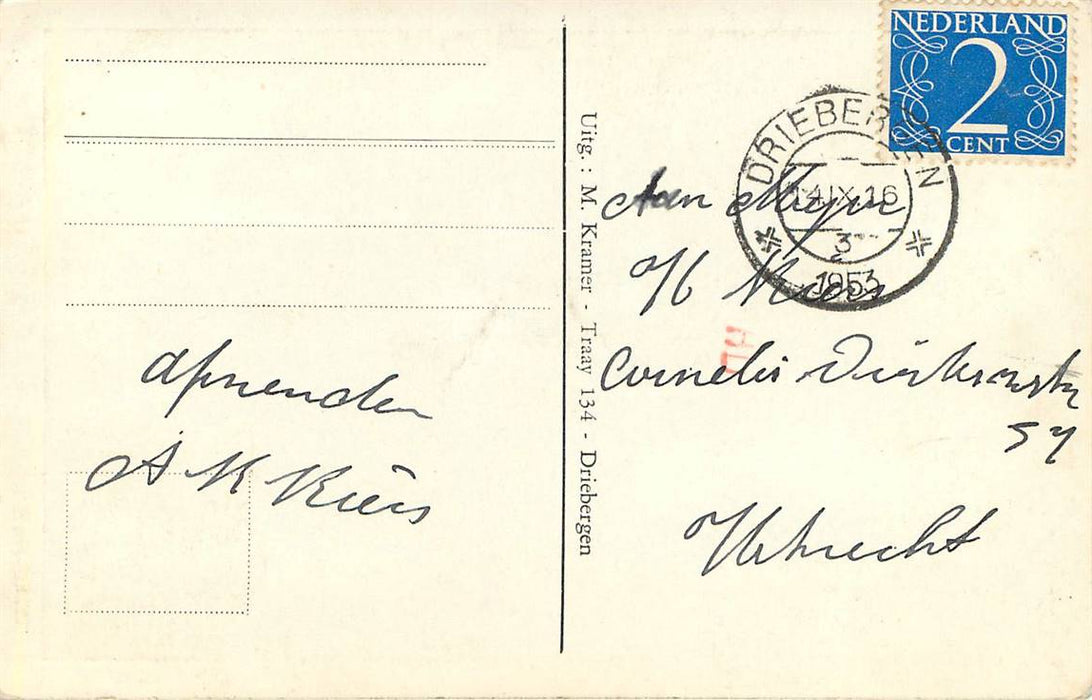 NEDERLAND
2
CENT
DRIEBERGEN
14 IX.16
3
1953
Uitg.: M. Kramer - Traay 134 - Driebergen
afzender
A K Kiers
Aan Mevr
H Kiers
Cornelis Dirkszstr
54
Utrecht